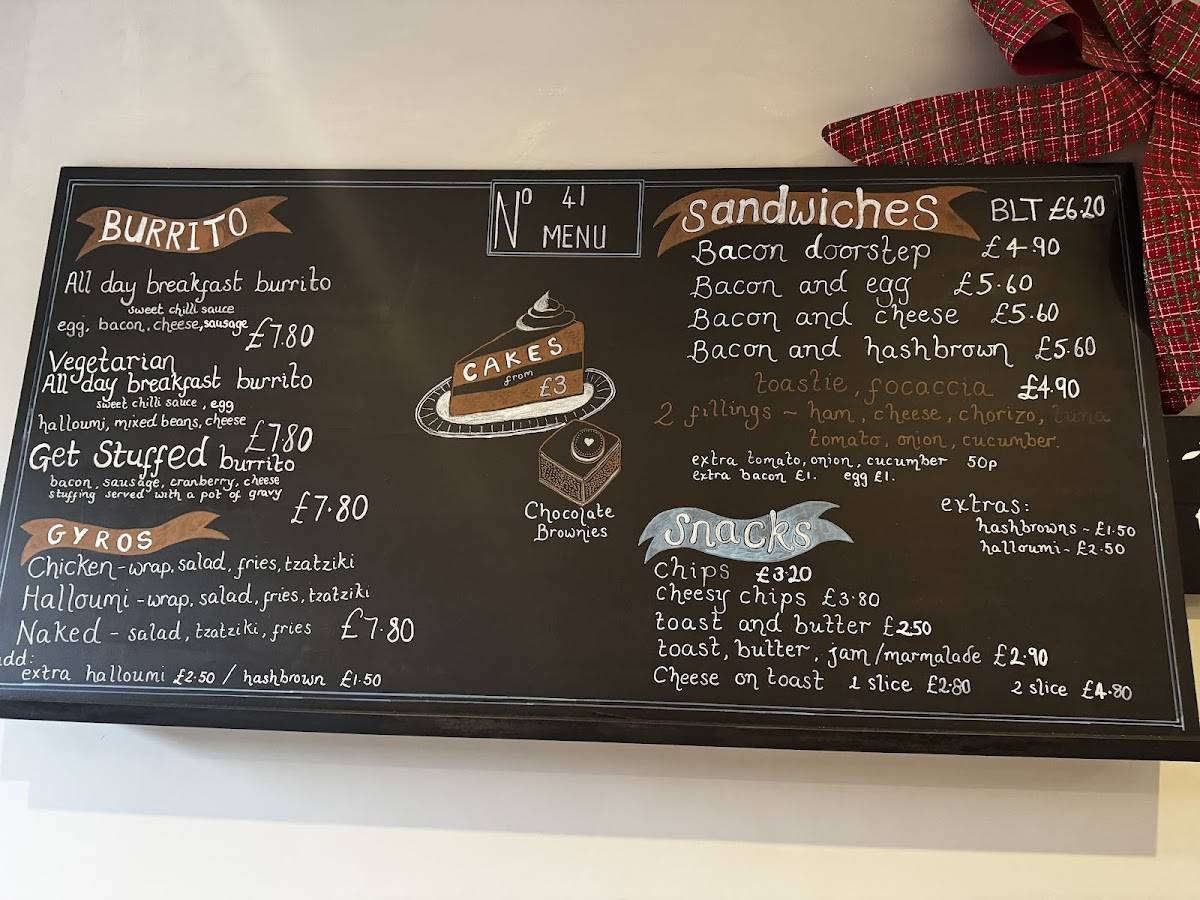 BURRITO
All day breakfast burrito
sweet chilli sauce
egg, bacon, cheese, sausage £7.80
Vegetarian
All day breakfast burrito
sweet chilli sauce, egg
halloumi, mixed beans, cheese £7.80
Get Stuffed burrito
bacon, sausage, cranberry, cheese
stuffing served with a pot of gravy
£7.80
GYROS
Chicken - wrap, salad, fries, tzatziki
Halloumi - wrap, salad, fries, tzatziki
Naked - salad, tzatziki, fries £7.80
add:
extra halloumi £2.50 / hashbrown £1.50
Nº 41
MENU
CAKES
from
£3
Chocolate
Brownies
Sandwiches BLT £6.20
Bacon doorstep £4.90
Bacon and egg £5.60
Bacon and cheese £5.60
Bacon and hashbrown £5.60
toastie, focaccia £4.90
2 fillings ~ ham, cheese, chorizo, tuna
tomato, onion, cucumber.
extra tomato, onion, cucumber 50p
extra bacon £1. egg £1.
extras:
hashbrowns - £1.50
halloumi - £2.50
Snacks
Chips £3.20
Cheesy chips £3.80
toast and butter £2.50
toast, butter, jam/marmalade £2.90
Cheese on toast 1 slice £2.80 2 slice £4.80